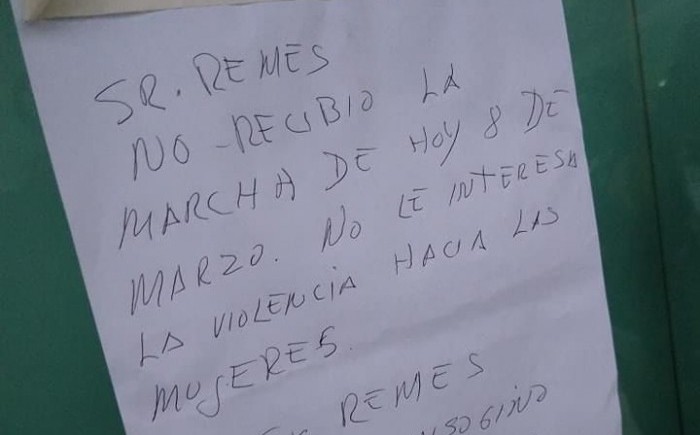 SR. REMES
NO RECIBIO LA
MARCHA DE HOY 8 DE
MARZO. NO LE INTERESA
LA VIOLENCIA HACIA LAS
MUJERES.
REMES